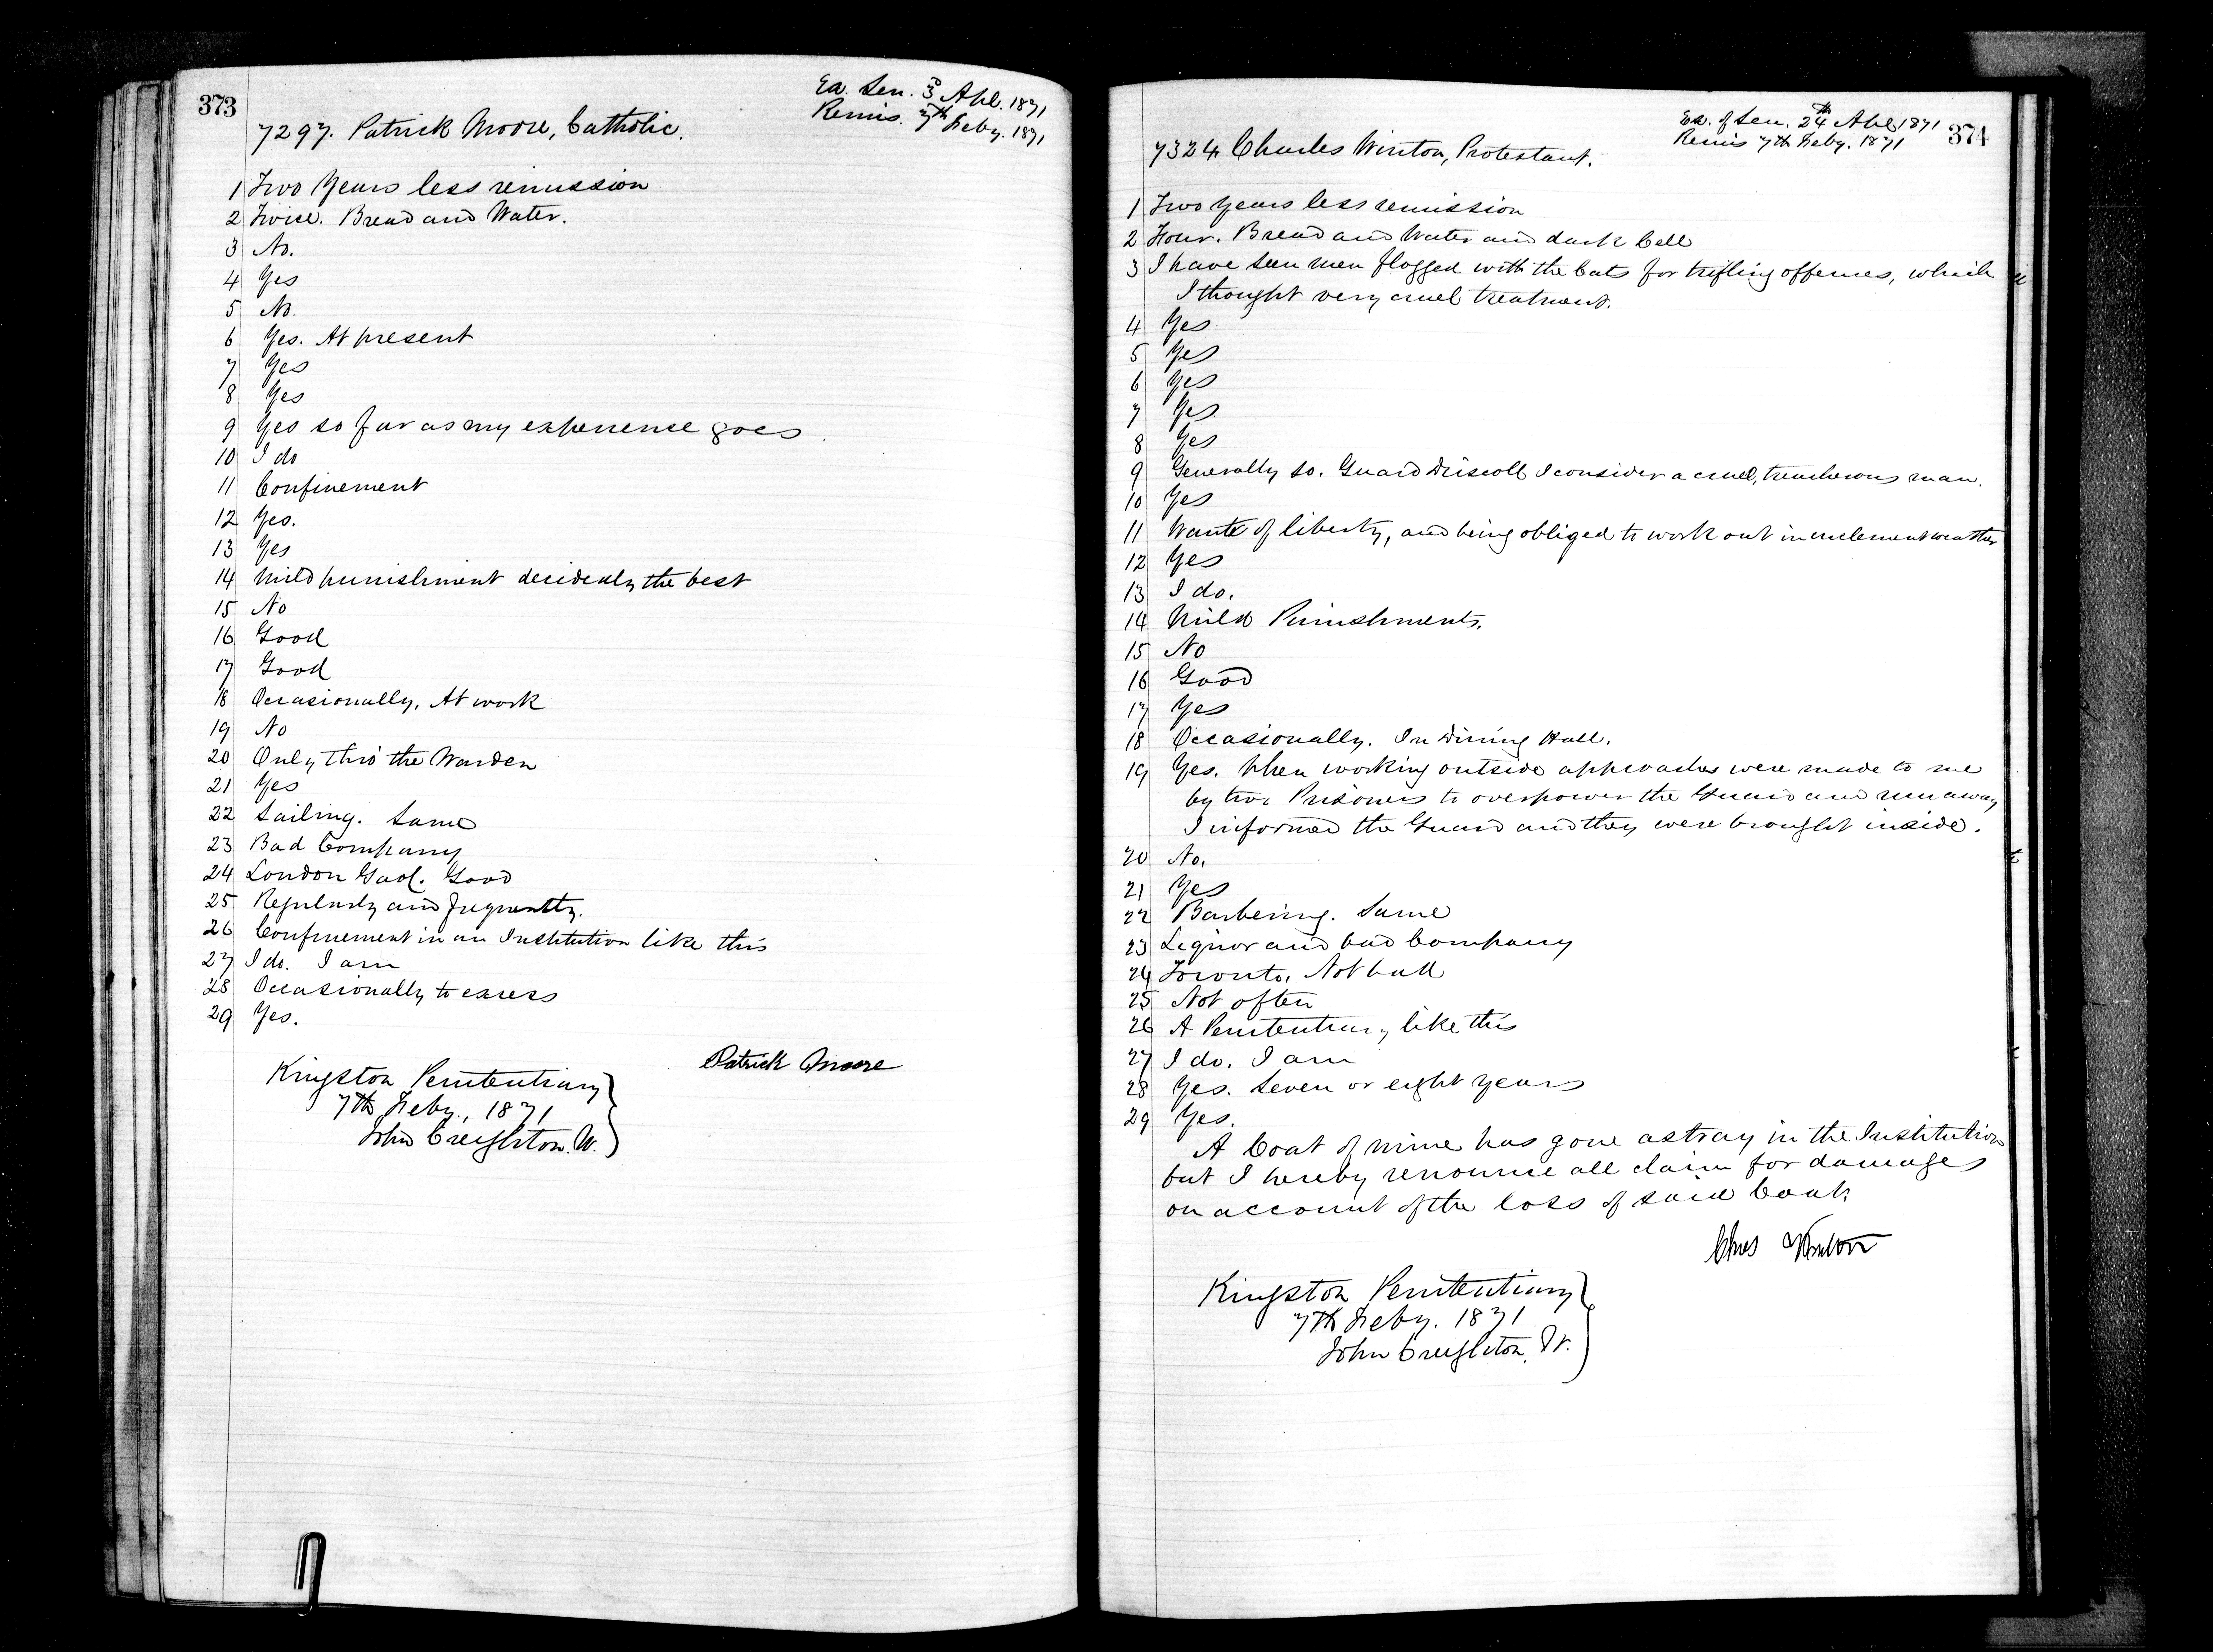 373
Ex. Sen. 3d Apl. 1871
Remis. 7th Feby. 1871
7297. Patrick Moore, Catholic.
1 Two Years less remission
2 Twice. Bread and Water.
3 No.
4 Yes
5 No.
6 Yes. At present
7 Yes
8 Yes
9 Yes so far as my experience goes
10 I do
11 Confinement
12 Yes.
13 Yes
14 Mild punishment decidedly the best
15 No
16 Good
17 Good
18 Occasionally. At work
19 No
20 Only thro' the Warden
21 Yes
22 Sailing. Same
23 Bad Company
24 London Gaol. Good
25 Regularly and frequently.
26 Confinement in an Institution like this
27 I do. I am
28 Occasionally to excess
29 Yes.
Patrick Moore
Kingston Penitentiary
7th Feby., 1871
John Creighton. W.
374
Ex. of Sen. 24th Apl 1871
Remis 7th Feby. 1871
7324 Charles Winton, Protestant.
1 Two years less remission
2 Four. Bread and Water and dark Cell
3 I have seen men flogged with the Cats for trifling offences, which
I thought very cruel treatment.
4 Yes
5 Yes
6 Yes
7 Yes
8 Yes
9 Generally so. Guard Driscoll I consider a cruel, treacherous man.
10 Yes
11 Want of liberty, and being obliged to work out in inclement weather
12 Yes
13 I do.
14 Mild Punishments.
15 No
16 Good
17 Yes
18 Occasionally. In Dining Hall.
19 Yes. When working outside approaches were made to me
by two Prisoners to overpower the Guard and run away
I informed the Guard and they were brought inside.
20 No.
21 Yes
22 Barbering. Same
23 Liquor and bad Company
24 Toronto. Not bad
25 Not often
26 A Penitentiary like this
27 I do. I am
28 Yes. Seven or eight years
29 Yes.
A Coat of mine has gone astray in the Institution
but I hereby renounce all claim for damages
on account of the loss of said Coat.
Chas Winton
Kingston Penitentiary
7th Feby. 1871
John Creighton, W.